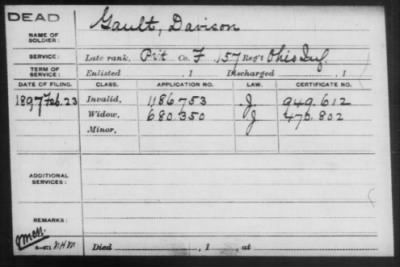 DEAD
NAME OF SOLDIER: Gault, Davison
SERVICE: Late rank, Pvt Co. F, 157 Reg't Ohio Inf.
TERM OF SERVICE: Enlisted , 1 Discharged , 1
DATE OF FILING. CLASS. APPLICATION NO. LAW. CERTIFICATE NO.
1897 Feb. 23 Invalid, 1186.753 J. 949.612
Widow, 680.350 J 476.802
Minor,
ADDITIONAL SERVICES:
REMARKS:
Died , 1 , at